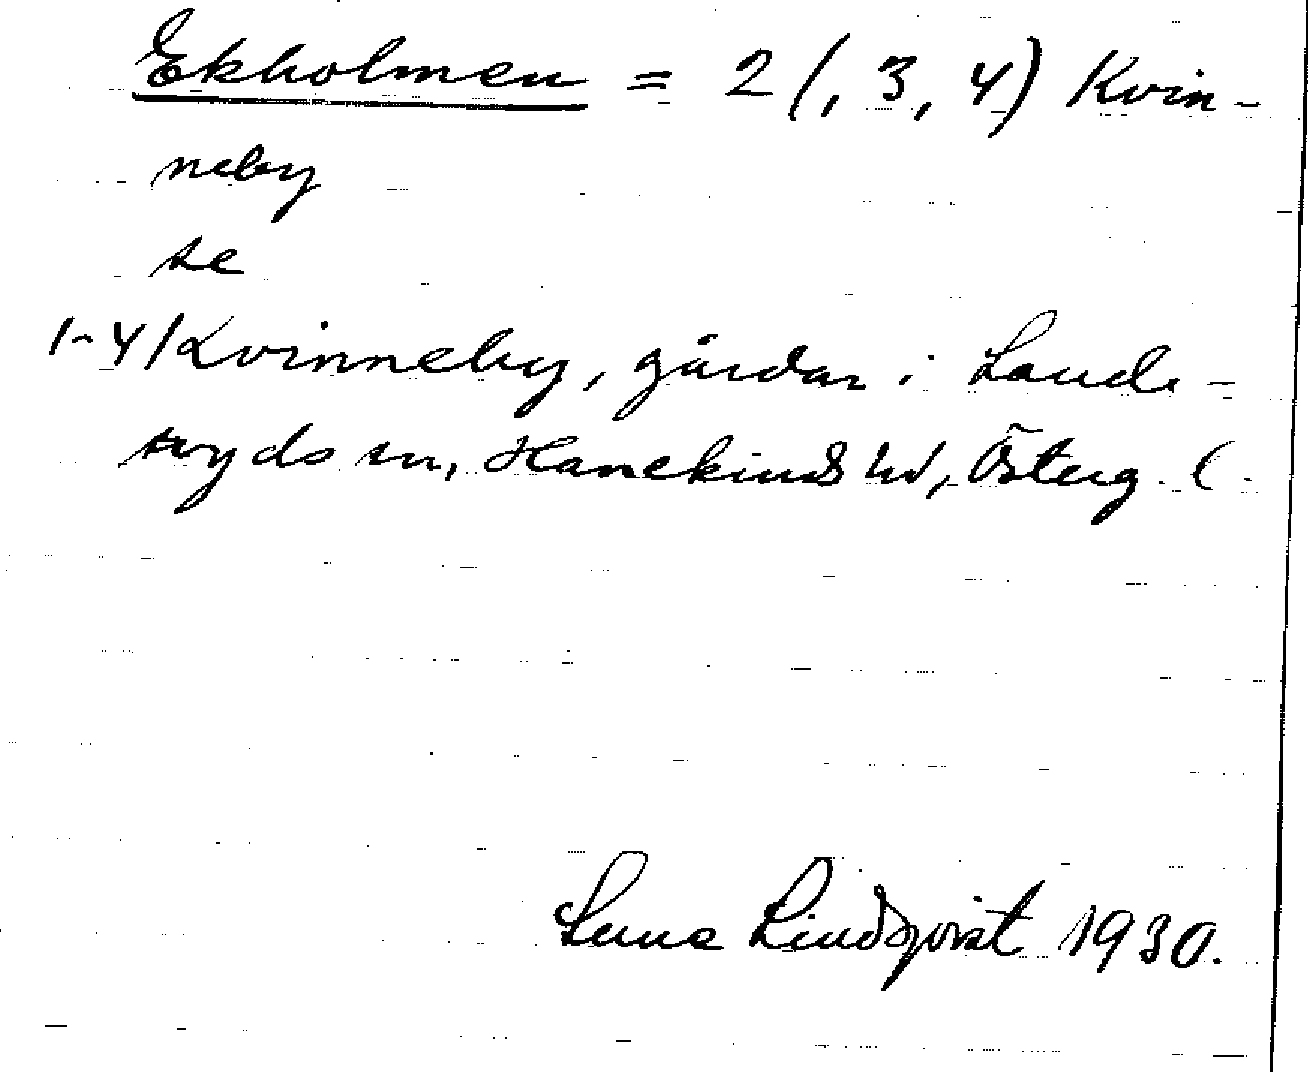 Ekholmen = 2 (, 3, 4) Kvin-
neby
se
1-4/Kvinneby, gårdar i Lands-
ryds sn, Hanekinds hd, Österg. l.
Lindqvist 1930.